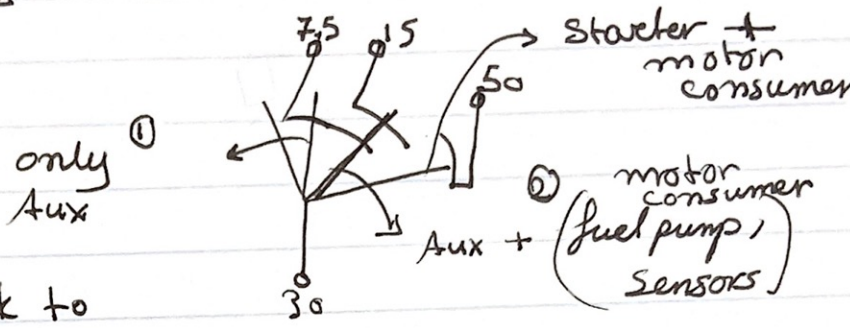 7,5 15
starter +
motor
consumer
50
①
only
Aux
② motor
consumer
Aux + (fuel pump,
sensors)
to
30